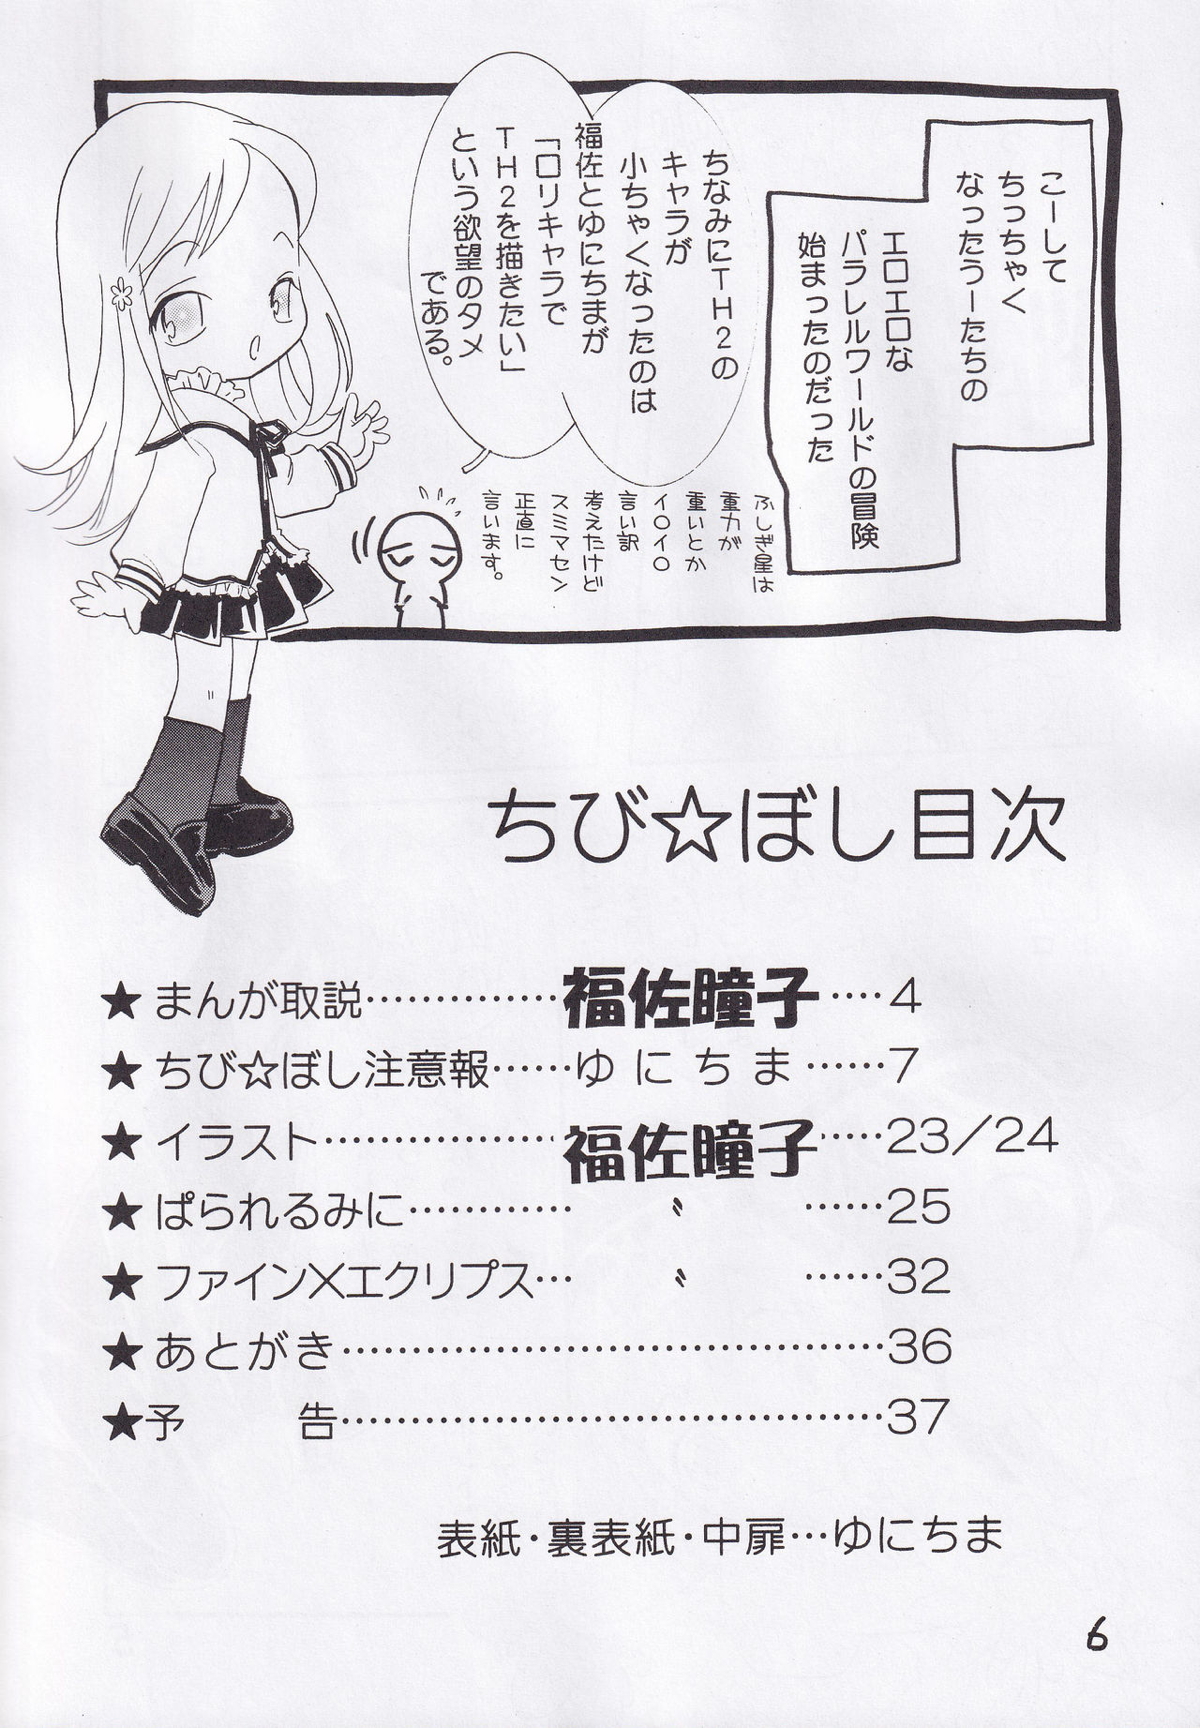 こーして
ちっちゃく
なったうーたちの
エロエロな
パラレルワールドの冒険
始まったのだった
ちなみにTH2の
キャラが
小ちゃくなったのは
福佐とゆにちまが
「ロリキャラで
TH2を描きたい」
という欲望のタメ
である。
ふしぎ星は
重力が
重いとか
イロイロ
言い訳
考えたけど
スミマセン
正直に
言います。
ちび☆ぼし目次
★まんが取説……………福佐瞳子‥‥4
★ちび☆ぼし注意報……ゆにちま……7
★イラスト………………福佐瞳子……23/24
★ぱられるみに…………〃……25
★ファイン×エクリプス…〃……32
★あとがき……………………………………36
★予　　告……………………………………37
表紙・裏表紙・中扉…ゆにちま
6